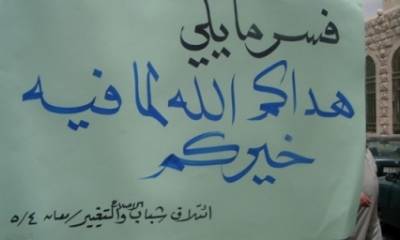 فسر ما يلي
هداكم الله لما فيه
خيركم
ائتلاف شباب الاصلاح والتغيير / معان ٥/٤